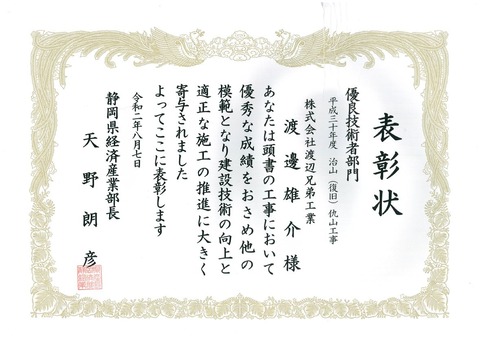 表彰状
優良技術者部門
平成三十年度 治山(復旧)仇山工事
株式会社渡辺兄弟工業
渡邊雄介様
あなたは頭書の工事において
優秀な成績をおさめ他の
模範となり建設技術の向上と
適正な施工の推進に大きく
寄与されました
よってここに表彰します
令和二年八月七日
静岡県経済産業部長
天野朗彦